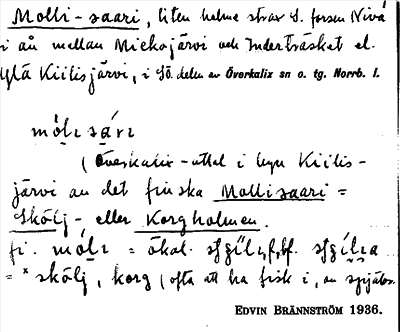 Molli-saari, liten holme strax S. forsen Nivá
i ån mellan Miekojärvi och Inderträsket el.
Ylä Kiitisjärvi, i Sö. delen av Överkalix sn o. tg. Norrb. l.
(Överkalix-uttal i byn Kiitis-
järvi av det finska Mollisaari =
Skölj- eller Korgholmen.
fi. = ökal.
= * skölj, korg (ofta att ha fisk i, av
EDVIN BRÄNNSTRÖM 1936.